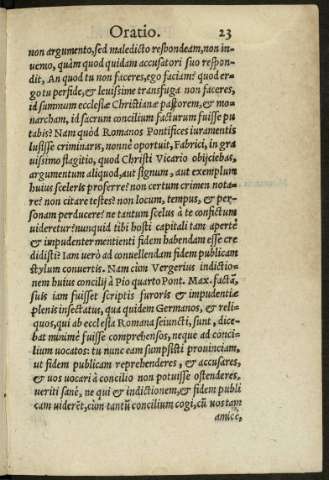 Oratio. 23
non argumento, sed maledicto respondeam, non in-
uenio, quàm quod quidam accusatori suo respon-
dit, An quod tu non faceres, ego faciam? quod er-
go tu perfide, & leuissime transfuga non faceres,
id summum ecclesiæ Christianæ pastorem, & mo-
narcham, id sacrum concilium facturum fuisse pu
tabis? Nam quòd Romanos Pontifices iuramentis
lusisse criminaris, nonnè oportuit, Fabrici, in gra
uissimo flagitio, quod Christi Vicario obijciebas,
argumentum aliquod, aut signum, aut exemplum
huius sceleris proferre? non certum crimen nota-
re? non citare testes? non locum, tempus, & per-
sonam perducere? ne tantum scelus à te confictum
uideretur? nunquid tibi hosti capitali tam apertè
& impudenter mentienti fidem habendam esse cre
didisti? Iam uerò ad conuellendam fidem publicam
stylum conuertis. Nam cùm Vergerius indictio-
nem huius concilij à Pio quarto Pont. Max. factã,
suis iam fuisset scriptis furoris & impudentiæ
plenis insectatus, qua quidem Germanos, & reli-
quos, qui ab ecclesia Romana seiuncti, sunt, dice-
bat minimè fuisse comprehensos, neque ad conci-
lium uocatos: tu nunc eam sumpsisti prouinciam,
ut fidem publicam reprehenderes, & accusares,
& uos uocari à concilio non potuisse ostenderes,
ueriti sanè, ne qui & indictionem, & fidem publi
cam uiderẽt, cùm tantũ concilium cogi, cũ uos tam
amicè,